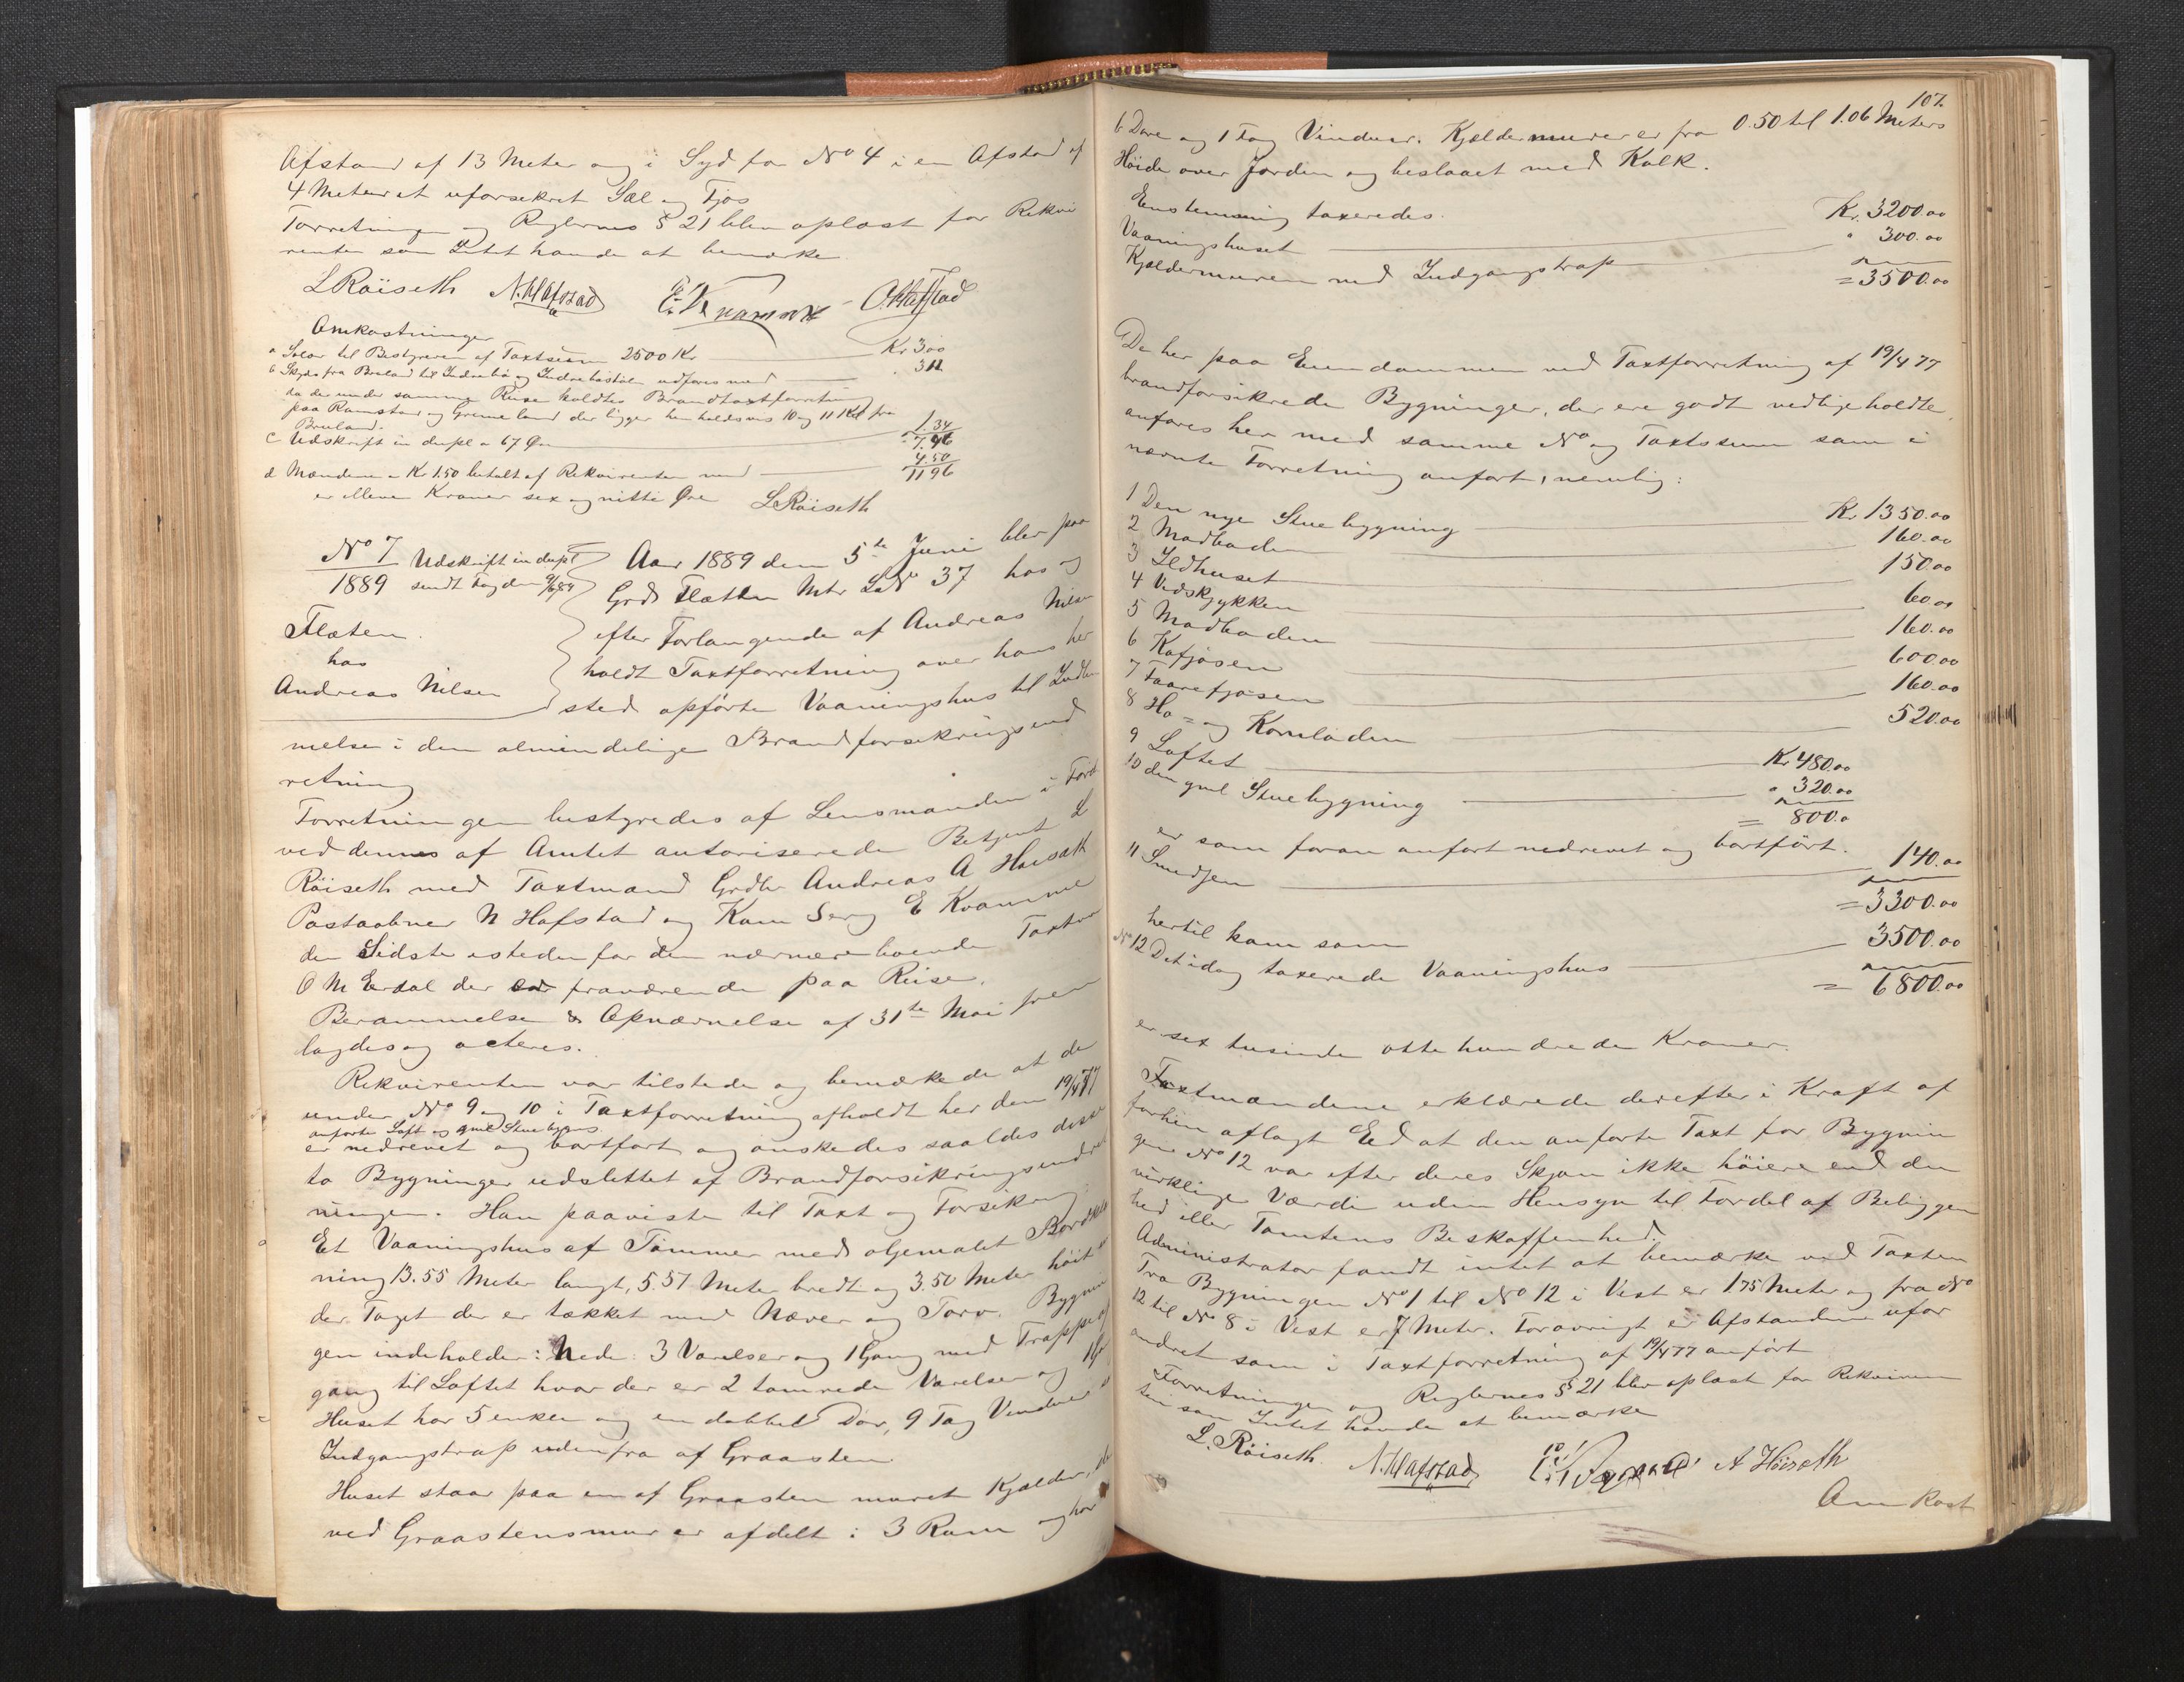 Afstand af 13 Meter og i Syd for No 4 i en Afstand af
4 Meter et uforsekret Sæl og Fjøs
Forretningen og Reglernes § 21 blev oplæst for Rekvi
renten som Intet havde at bemærke
L Röiseth N. Hafstad E. Kvamme O. Hafstad
Omkostninger
a Salær til Bestyreren af Taxtsum 2500 Kr Kr 3.00
b Skyds fra Bruland til Indrebø og Indrebøstøl udføres med 3.12
da der under samme Reise holdtes Brandtaxtforretning
paa Ramstad og Grimeland der ligger henholdsvis 10 og 11 Kil fra
Bruland.
c Udskrift in dupl a 67 Øre 1.34
7.46
d Mændene a Kr 1.50 betalt af Rekvirenten med 4.50
11 96
er elleve Kroner sex og nitti Øre L Röiseth
No 7 Udskrift in dupl
1889 sendt Fogden 9/6 89
Flaten.
hos
Andreas Nilsen
Aar 1889 den 5te Juni blev paa
Grd Flatten Mtr LNo 37 hos og
efter Forlangende af Andreas Nilsen
holdt Taxtforretning over hans her
sted opførte Vaaningshus til Indlem
melse i den almindelige Brandforsekringsind
retning
Forretningen bestyredes af Lensmanden i Førde
ved dennes af Amtet autoriserede Betjent L
Röiseth med Taxtmænd Grdbr Andreas A Høiseth
Postaabner N Hafstad og Kom Serg E Kvamme
den Sidste istedenfor den nærmereboende Taxtm
O M Erdal der er fraværende paa Reise.
Berammelse & Opnævnelse af 31te Mai frem
lagdes og acteres.
Rekvirenten var tilstede og bemærkede at de
under No 9 og 10 i Taxtforretning afholdt her den 19/4 77
anførte Loft og gml Stuebygng
er nedrevet og bortført og ønskedes saaledes disse
to Bygninger udslettet af Brandforsikringsindret
ningen. Han paaviste til Taxt og Forsikring
Et Vaaningshus af Tømmer med oljemalet Bordklæd
ning 13.55 Meter langt, 5.57 Meter bredt og 3.50 Meter høit un
der Taget der er tækket med Næver og Torv. Bygnin
gen indeholder: Nede: 3 Værelser og 1 Gang med Trappeop
gang til Loftet hvor der er 2 tømrede Værelser og 1 Gang
Huset har 5 enkle og en dobbelt Dør, 9 Fag Vinduer
Indgangstrap udenfra af Graasten
Huset staar paa en af Graasten muret Kjælder, der
ved Graastensmur er afdelt i 3 Rum og har
107.
6 Døre og 1 Fag Vinduer. Kjældermurer er fra 0.50 til 1.06 Meters
Høide over Jorden og beslaaet med Kalk.
Enstemmig taxeredes.
Vaaningshuset Kr. 3200.00
Kjældermuren med Indgangstrap " 300.00
= 3500.00
De her paa Eiendommen ved Taxtforretning af 19/4 77
brandforsikrede Bygninger, der ere godt vedligeholdte,
anføres her med samme No og Taxtssum som i
nævnte Forretning anført, nemlig:
1 Den nye Stuebygning Kr. 1350.00
2 Madboden 160.00
3 Ildhuset 150.00
4 Vedskjykken 60.00
5 Madboden 160.00
6 Kofjøsen 600.00
7 Faarefjøsen 160.00
8 Hø- og Kornladen 520.00
9 Loftet Kr 480.00
10 den gml Stuebygning " 320.00
= 800.0
er som foran anført nedrevet og bortført.
11 Smedjen 140.00
= 3300.00
hertil kom som
No 12 Det idag taxerede Vaaningshus 3500.00
= 6800.00
er sex tusinde otte hundrede Kroner.
Taxtmændene erklærede derefter i Kraft af
forhen aflagt Eed at den anførte Taxt for Bygnin
gen No 12 var efter deres Skjøn ikke høiere end den
virkelige Værdi uden Hensyn til Fordel af Beliggen
hed eller Tomtens Beskaffenhed.
Administrator fandt intet at bemærke ved Taxten
Fra Bygningen No 1 til No 12 i Vest er 1.75 Meter og fra No
12 til No 8 i Vest er 7 Meter. Forøvrigt er Afstandene ufor
andret som i Taxtforretning af 19/4 77 anført
Forretningen og Reglernes § 21 blev oplæst for Rekviren
ten som Intet havde at bemærke
L. Röiseth. N. Hafstad E. Kvamme A Höiseth
Omkost